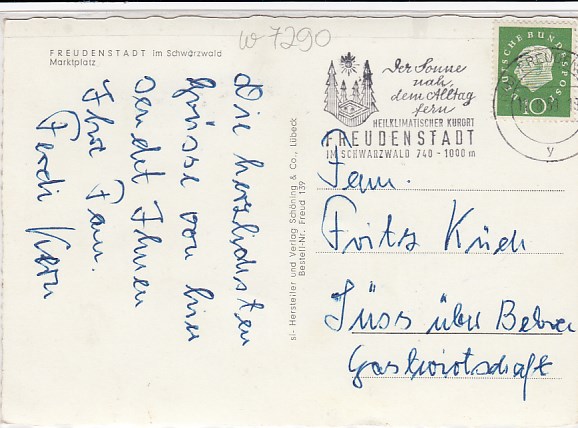 w 7290
FREUDENSTADT im Schwarzwald
Marktplatz
Die herzlichsten
Grüsse von hier
sendet Ihnen
Ihre Fam.
Ferdi
sl- Hersteller und Verlag Schöning & Co., Lübeck
Bestell-Nr. Freud 139
Der Sonne
nah,
dem Alltag
fern
HEILKLIMATISCHER KURORT
FREUDENSTADT
IM SCHWARZWALD 740 - 1000 m
DEUTSCHE BUNDESPOST
10
y
Fam.
Fritz Küch
Süss über Bebra
Gastwirtschaft